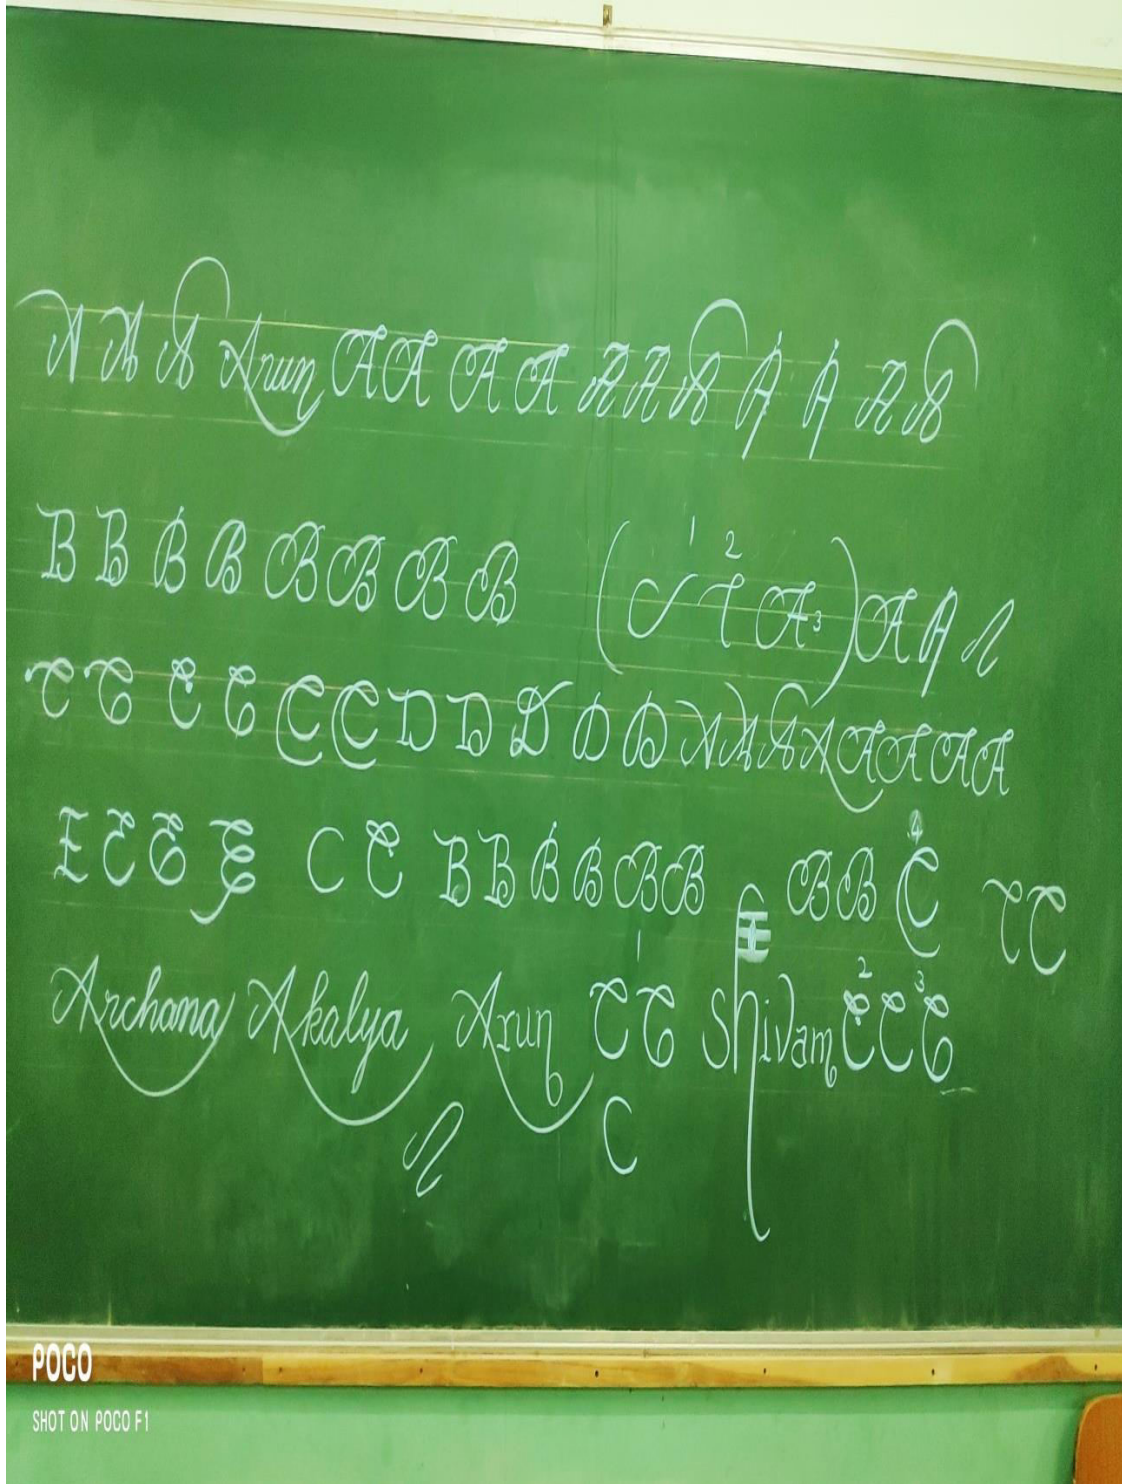 A A A Arun A A A A A A A A A A A
B B B B B B B B ( 1 2 A 3 ) A A
C C C C C C D D D D D A A A A A A A A
E E E E C C B B B B B B B B 4 C C C
Archana Akalya Arun 1 C C Shivam 2 C C 3 C
C
POCO
SHOT ON POCO F1